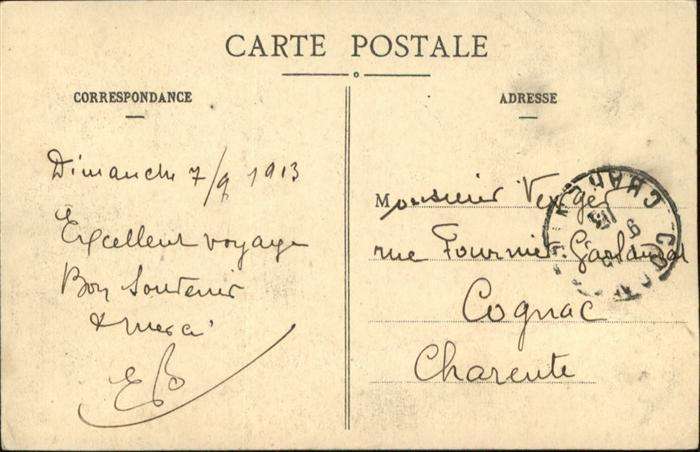 CARTE POSTALE
CORRESPONDANCE
Dimanche 7/9 1913
Excellent voyage
Bon Souvenir
& merci
EB
ADRESSE
Monsieur Verger
rue Fournier-Garlandat
Cognac
Charente